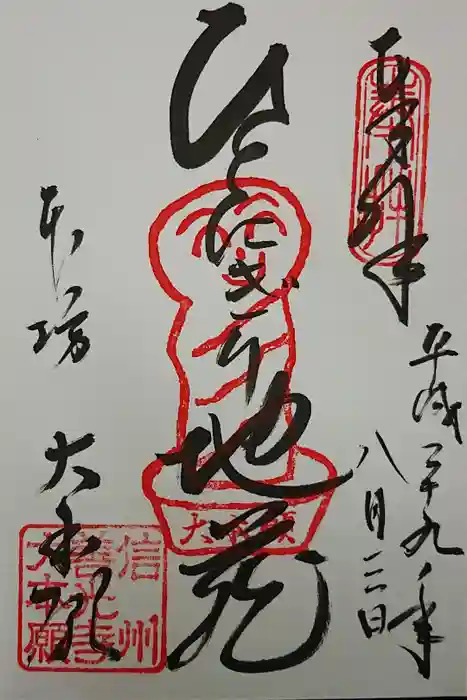 奉拝
平成二十九年
八月二日
ひとにぎり地蔵
大本願
本坊 大本願
信州
善光寺
大本願